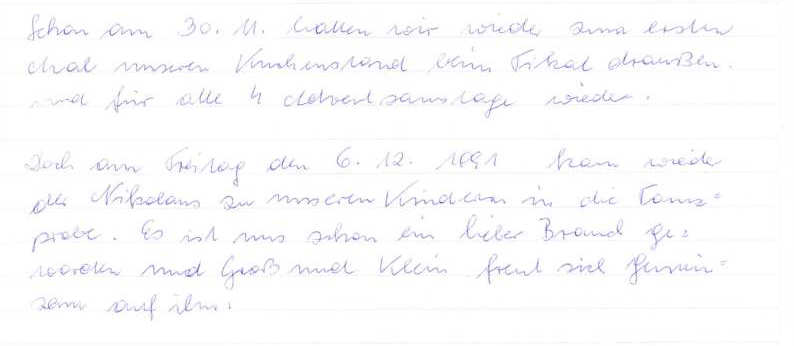 Schon am 30. 11. hatten wir wieder zum ersten
Mal unseren Kuchenstand beim Tikal draußen.
und für alle 4 Adventsamstage wieder.
Doch am Freitag den 6. 12. 1991 kam wieder
der Nikolaus zu unseren Kindern in die Tanz=
probe. Es ist uns schon ein lieber Brauch ge=
worden und Groß und Klein freut sich gemein=
sam auf ihn.